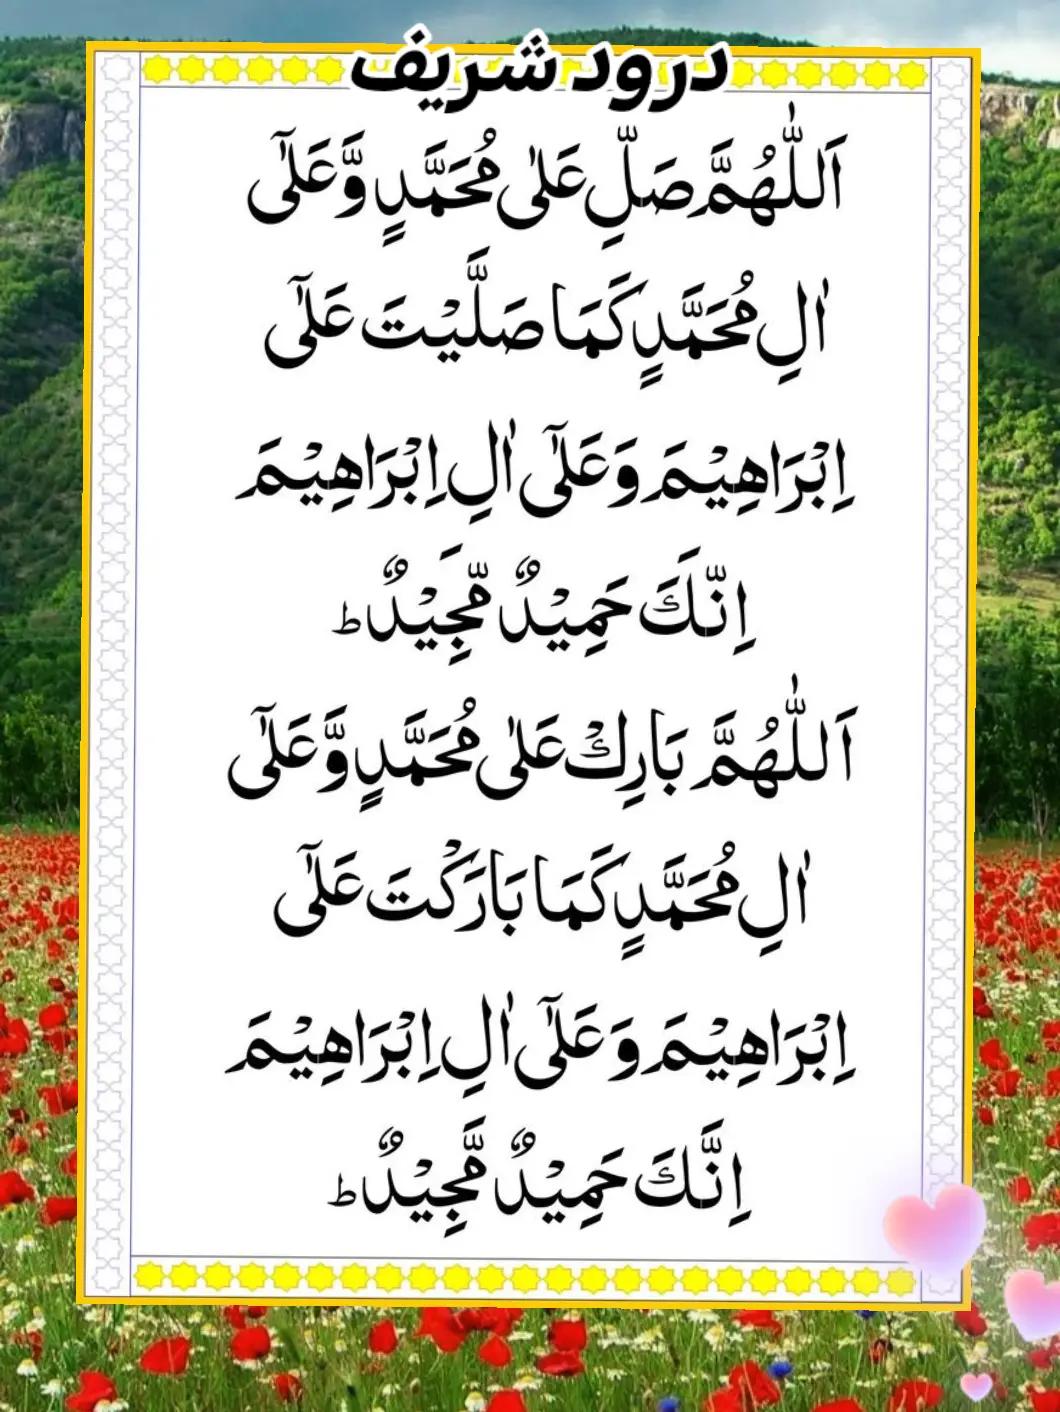 درود شریف
اَللّٰهُمَّ صَلِّ عَلٰى مُحَمَّدٍ وَّعَلٰٓى
اٰلِ مُحَمَّدٍ كَمَا صَلَّيْتَ عَلٰٓى
اِبْرَاهِيْمَ وَعَلٰٓى اٰلِ اِبْرَاهِيْمَ
اِنَّكَ حَمِيْدٌ مَّجِيْدٌ ط
اَللّٰهُمَّ بَارِكْ عَلٰى مُحَمَّدٍ وَّعَلٰٓى
اٰلِ مُحَمَّدٍ كَمَا بَارَكْتَ عَلٰٓى
اِبْرَاهِيْمَ وَعَلٰٓى اٰلِ اِبْرَاهِيْمَ
اِنَّكَ حَمِيْدٌ مَّجِيْدٌ ط